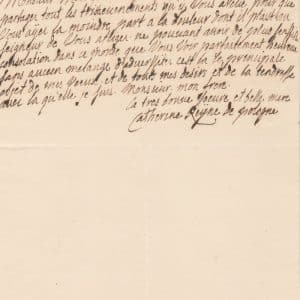 Monsieur
partager tout
Vous aye la moindre part a la douleur dont il plait au
seigneur de Vous affliger ne pouvant avoir de plus sensible
consolation dans ce monde que Vous Voir parfaitement heureux
sans aucun melange d'adversitez c'est la le principale
objet de mes Voeux et de tout mes desirs et de la tendresse
avec la quelle je suis. Monsieur mon frere
la tres bonne soeure et belle mere
Catherine Reijne de pologne